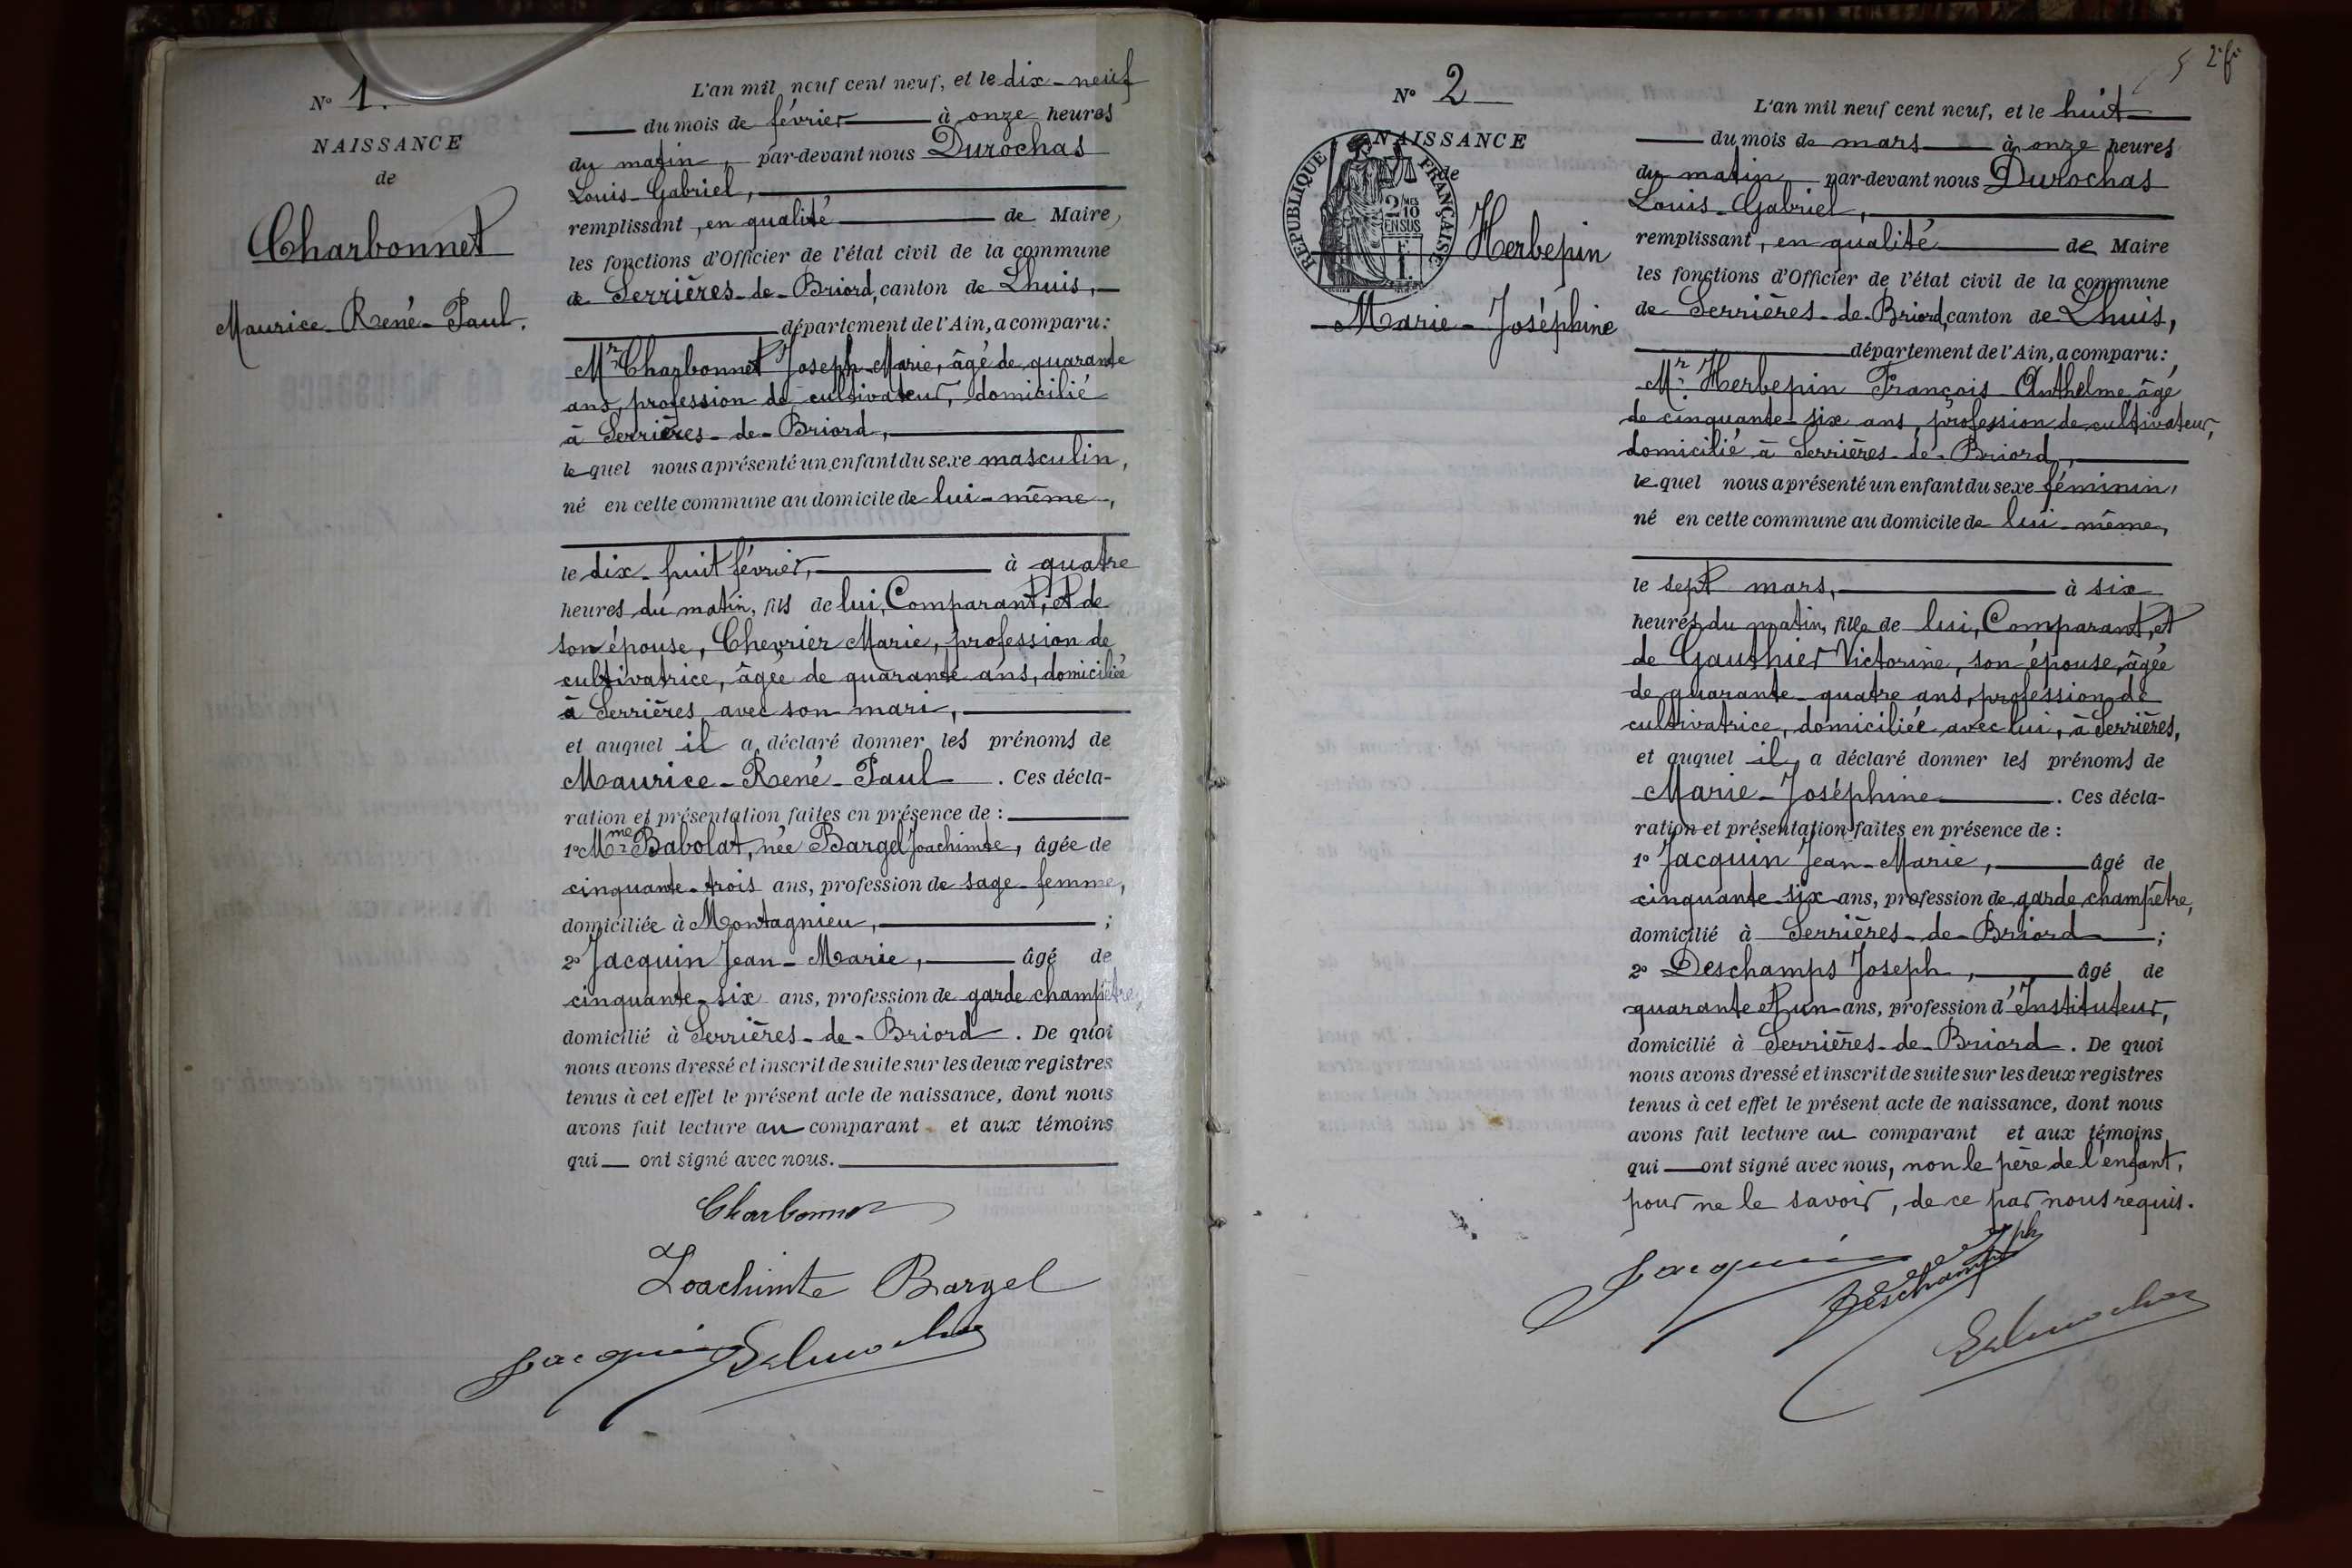 N° 1.
NAISSANCE
de
Charbonnet
Maurice-René-Paul.
L'an mil neuf cent neuf, et le dix-neuf
du mois de février à onze heures
du matin, par-devant nous Durochas
Louis-Gabriel,
remplissant, en qualité de Maire,
les fonctions d'Officier de l'état civil de la commune
de Serrières-de-Briord, canton de Lhuis,
département de l'Ain, a comparu:
Mr Charbonnet Joseph-Marie, âgé de quarante
ans, profession de cultivateur, domicilié
à Serrières-de-Briord,
lequel nous a présenté un enfant du sexe masculin,
né en cette commune au domicile de lui-même,
le dix-huit février, à quatre
heures du matin, fils de lui, Comparant, et de
son épouse, Chevrier Marie, profession de
cultivatrice, âgée de quarante ans, domiciliée
à Serrières avec son mari,
et auquel il a déclaré donner les prénoms de
Maurice-René-Paul. Ces décla-
ration et présentation faites en présence de :
1° Mme Babolat, née Bargel Joachimte, âgée de
cinquante-trois ans, profession de sage-femme,
domiciliée à Montagnieu, ;
2° Jacquin Jean-Marie, âgé de
cinquante-six ans, profession de garde champêtre,
domicilié à Serrières-de-Briord. De quoi
nous avons dressé et inscrit de suite sur les deux registres
tenus à cet effet le présent acte de naissance, dont nous
avons fait lecture au comparant et aux témoins
qui ont signé avec nous.
Charbonnet
Joachimte Bargel
Jacquin Durochas
5 2e fe
N° 2
NAISSANCE
de
REPUBLIQUE FRANÇAISE
2/10 MES
EN SUS
1 F.
Herbepin
Marie-Joséphine
L'an mil neuf cent neuf, et le huit
du mois de mars à onze heures
du matin par-devant nous Durochas
Louis-Gabriel,
remplissant, en qualité de Maire
les fonctions d'Officier de l'état civil de la commune
de Serrières-de-Briord, canton de Lhuis,
département de l'Ain, a comparu:
Mr. Herbepin François-Anthelme âgé
de cinquante-six ans, profession de cultivateur,
domicilié à Serrières-de-Briord,
lequel nous a présenté un enfant du sexe féminin,
né en cette commune au domicile de lui-même,
le sept mars, à six
heures du matin, fille de lui, Comparant, et
de Gauthier Victorine, son épouse, âgée
de quarante-quatre ans, profession de
cultivatrice, domiciliée avec lui, à Serrières,
et auquel il a déclaré donner les prénoms de
Marie-Joséphine. Ces décla-
ration et présentation faites en présence de :
1° Jacquin Jean-Marie, âgé de
cinquante-six ans, profession de garde champêtre,
domicilié à Serrières-de-Briord ;
2° Deschamps Joseph, âgé de
quarante et un ans, profession d'Instituteur,
domicilié à Serrières-de-Briord. De quoi
nous avons dressé et inscrit de suite sur les deux registres
tenus à cet effet le présent acte de naissance, dont nous
avons fait lecture au comparant et aux témoins
qui ont signé avec nous, non le père de l'enfant,
pour ne le savoir, de ce par nous requis.
Jacquin Deschamps Joseph
Durochas